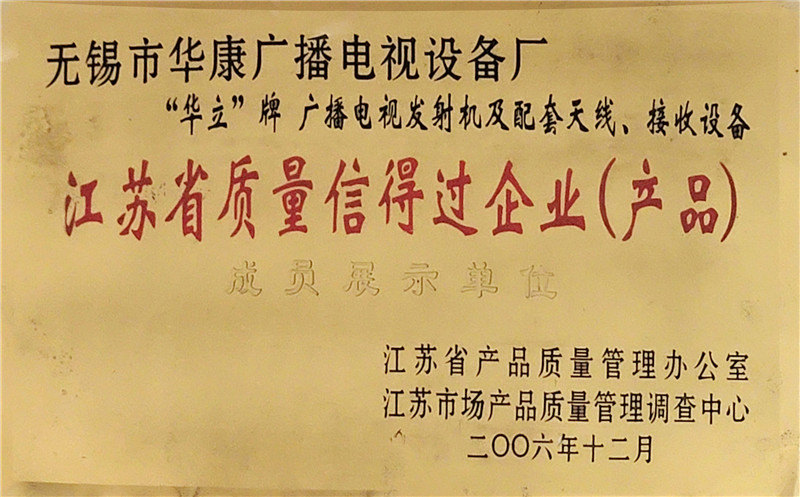 无锡市华康广播电视设备厂
“华立”牌 广播电视发射机及配套天线、接收设备
江苏省质量信得过企业(产品)
成员展示单位
江苏省产品质量管理办公室
江苏市场产品质量管理调查中心
二〇〇六年十二月